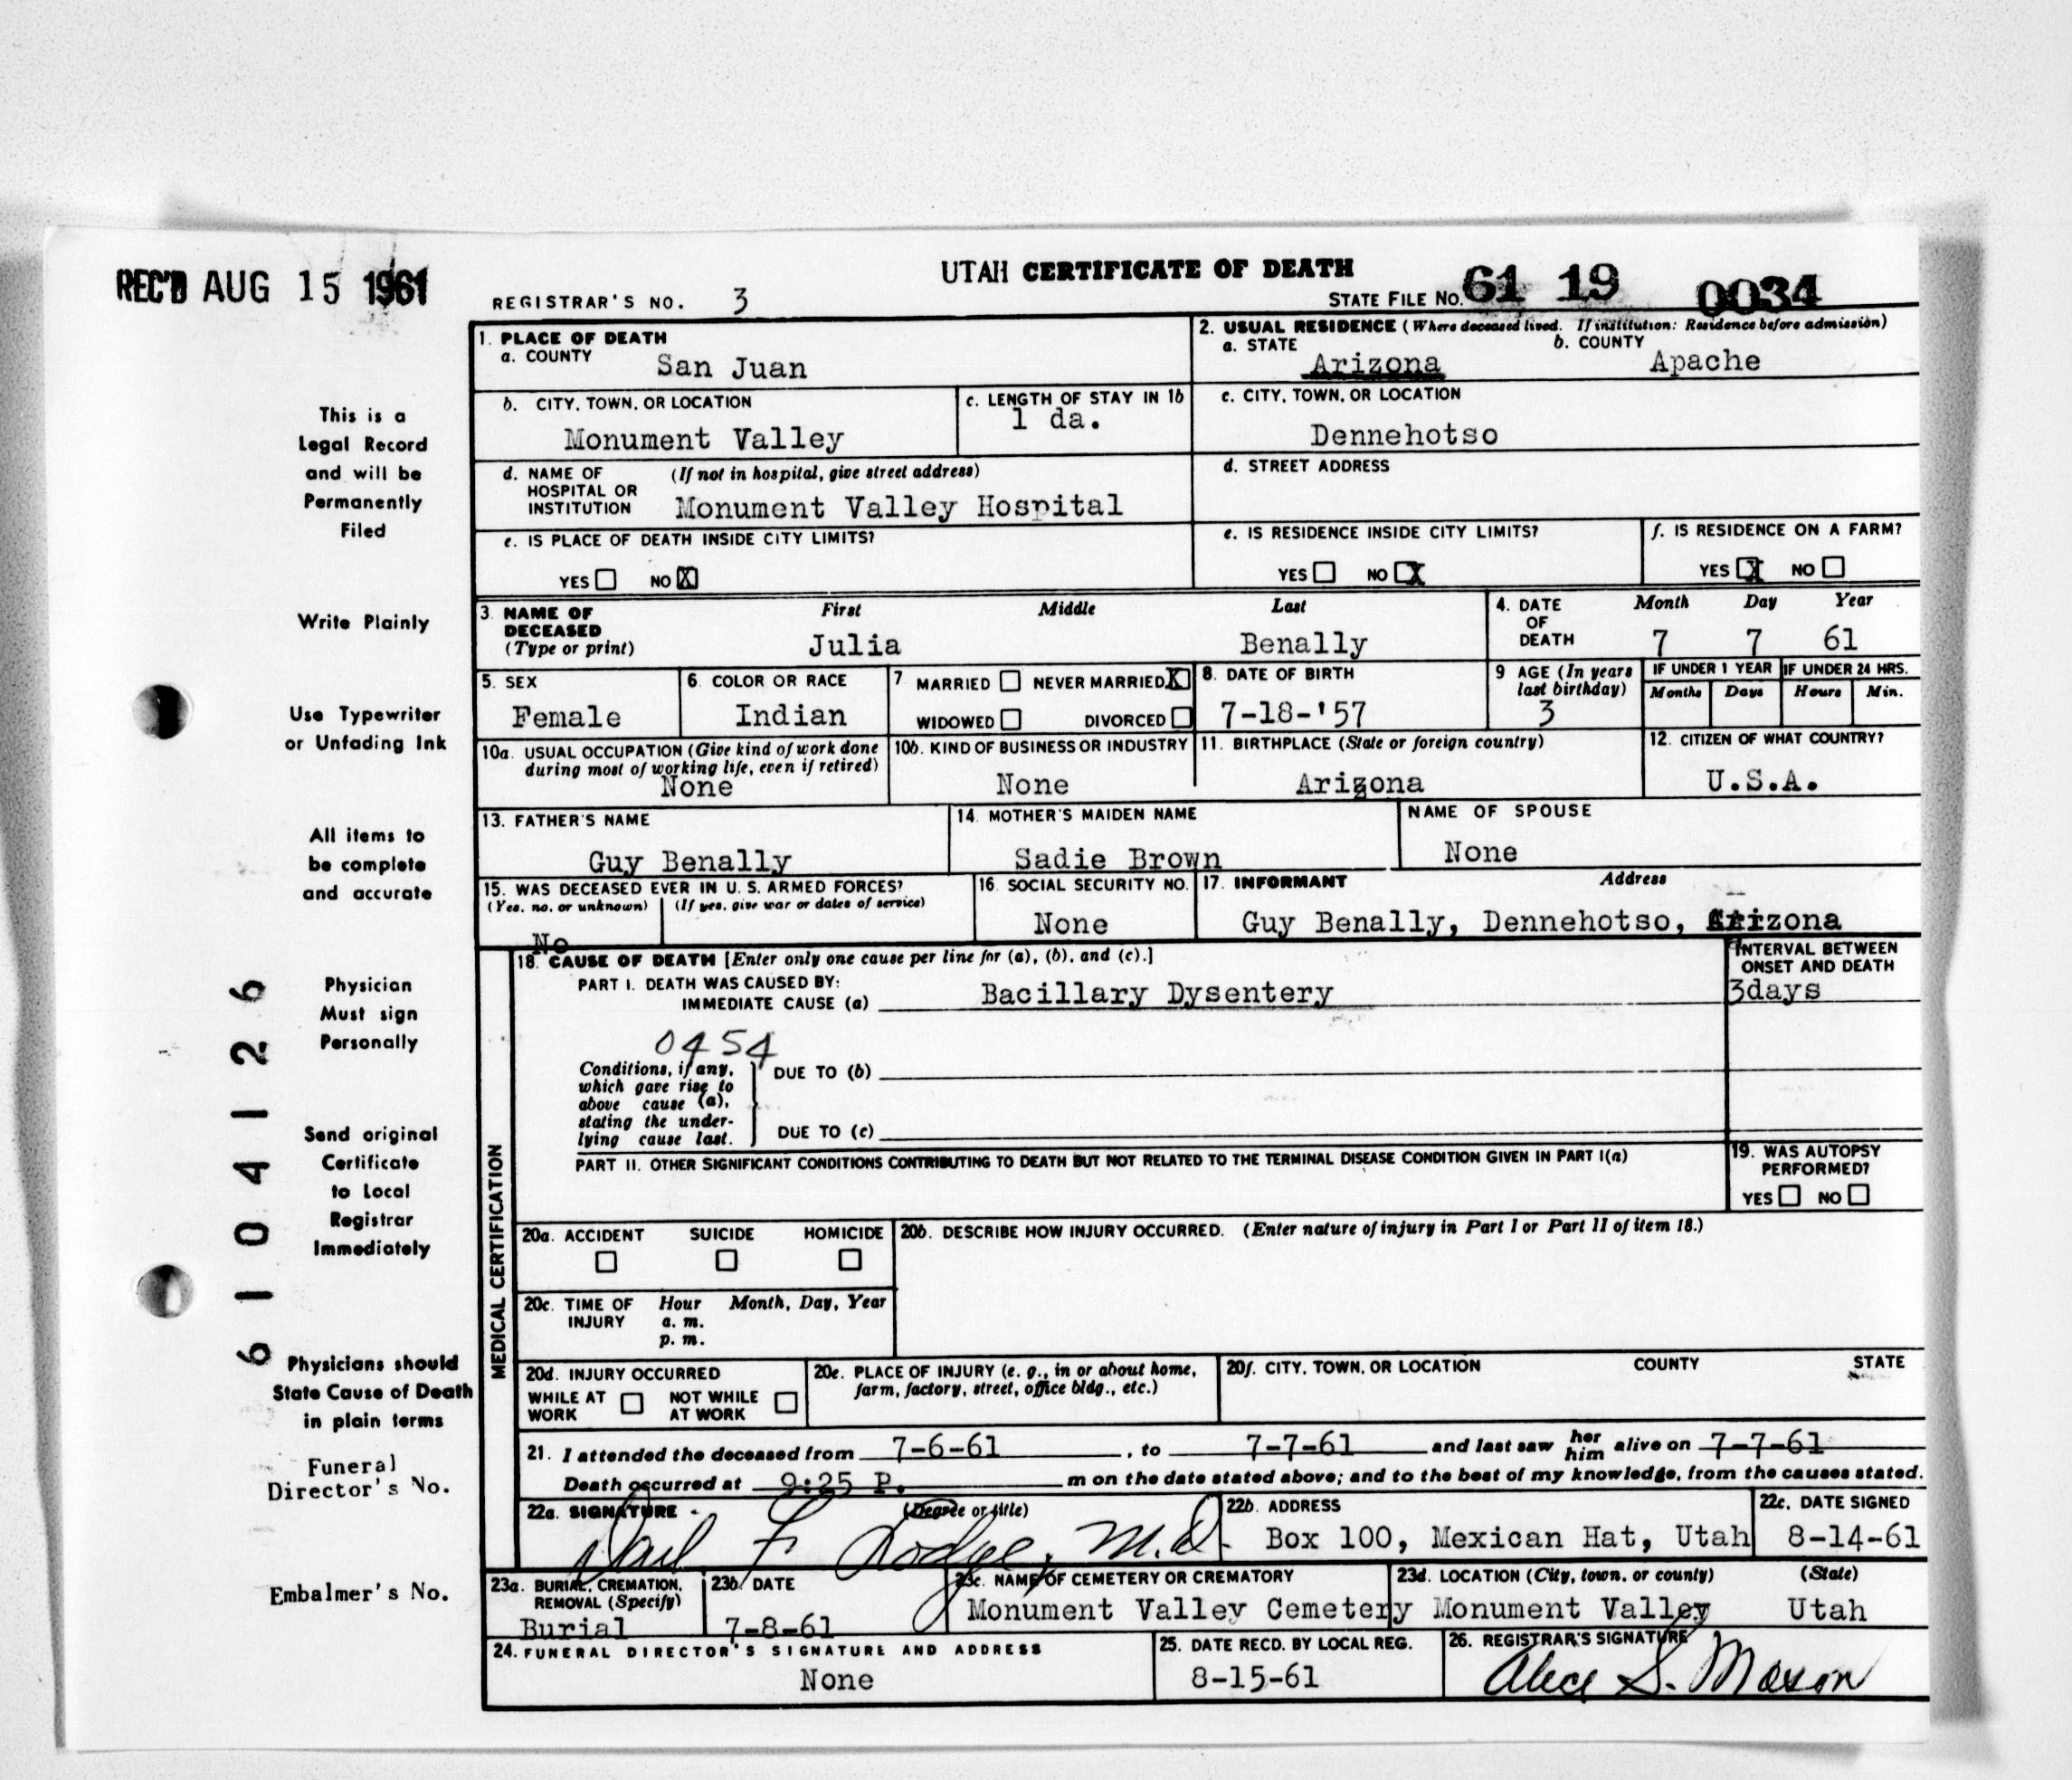 REC'D AUG 15 1961
UTAH CERTIFICATE OF DEATH
REGISTRAR'S NO. 3
STATE FILE NO. 61 19 0034
This is a
Legal Record
and will be
Permanently
Filed
Write Plainly
Use Typewriter
or Unfading Ink
All items to
be complete
and accurate
Physician
Must sign
Personally
Send original
Certificate
to Local
Registrar
Immediately
Physicians should
State Cause of Death
in plain terms
Funeral
Director's No.
Embalmer's No.
61041126
1. PLACE OF DEATH
a. COUNTY
San Juan
2. USUAL RESIDENCE (Where deceased lived. If institution: Residence before admission)
a. STATE b. COUNTY
Arizona Apache
b. CITY, TOWN, OR LOCATION
Monument Valley
c. LENGTH OF STAY IN 1b
1 da.
c. CITY, TOWN, OR LOCATION
Dennehotso
d. NAME OF (If not in hospital, give street address)
HOSPITAL OR
INSTITUTION Monument Valley Hospital
d. STREET ADDRESS
e. IS PLACE OF DEATH INSIDE CITY LIMITS?
YES NO X
e. IS RESIDENCE INSIDE CITY LIMITS?
YES NO X
f. IS RESIDENCE ON A FARM?
YES X NO
3. NAME OF First Middle Last
DECEASED
(Type or print) Julia Benally
4. DATE Month Day Year
OF
DEATH 7 7 61
5. SEX
Female
6. COLOR OR RACE
Indian
7. MARRIED NEVER MARRIED X
WIDOWED DIVORCED
8. DATE OF BIRTH
7-18-'57
9 AGE (In years
last birthday)
3
IF UNDER 1 YEAR IF UNDER 24 HRS.
Months Days Hours Min.
10a. USUAL OCCUPATION (Give kind of work done
during most of working life, even if retired)
None
10b. KIND OF BUSINESS OR INDUSTRY
None
11. BIRTHPLACE (State or foreign country)
Arizona
12. CITIZEN OF WHAT COUNTRY?
U.S.A.
13. FATHER'S NAME
Guy Benally
14. MOTHER'S MAIDEN NAME
Sadie Brown
NAME OF SPOUSE
None
15. WAS DECEASED EVER IN U. S. ARMED FORCES?
(Yes, no, or unknown) (If yes, give war or dates of service)
No
16. SOCIAL SECURITY NO.
None
17. INFORMANT Address
Guy Benally, Dennehotso, Arizona
MEDICAL CERTIFICATION
18. CAUSE OF DEATH [Enter only one cause per line for (a), (b), and (c).]
INTERVAL BETWEEN
ONSET AND DEATH
PART I. DEATH WAS CAUSED BY:
IMMEDIATE CAUSE (a) Bacillary Dysentery 3days
0454
Conditions, if any,
which gave rise to
above cause (a),
stating the under-
lying cause last.
DUE TO (b)
DUE TO (c)
PART II. OTHER SIGNIFICANT CONDITIONS CONTRIBUTING TO DEATH BUT NOT RELATED TO THE TERMINAL DISEASE CONDITION GIVEN IN PART I(a)
19. WAS AUTOPSY
PERFORMED?
YES NO
20a. ACCIDENT SUICIDE HOMICIDE
20b. DESCRIBE HOW INJURY OCCURRED. (Enter nature of injury in Part I or Part II of item 18.)
20c. TIME OF Hour Month, Day, Year
INJURY a. m.
p. m.
20d. INJURY OCCURRED
WHILE AT NOT WHILE
WORK AT WORK
20e. PLACE OF INJURY (e. g., in or about home,
farm, factory, street, office bldg., etc.)
20f. CITY, TOWN, OR LOCATION COUNTY STATE
21. I attended the deceased from 7-6-61, to 7-7-61 and last saw her him alive on 7-7-61
Death occurred at 9:25 P. m on the date stated above; and to the best of my knowledge, from the causes stated.
22a. SIGNATURE (Degree or title)
F. Lodge, M.D.
22b. ADDRESS
Box 100, Mexican Hat, Utah
22c. DATE SIGNED
8-14-61
23a. BURIAL, CREMATION,
REMOVAL (Specify)
Burial
23b. DATE
7-8-61
23c. NAME OF CEMETERY OR CREMATORY
Monument Valley Cemetery
23d. LOCATION (City, town, or county) (State)
Monument Valley Utah
24. FUNERAL DIRECTOR'S SIGNATURE AND ADDRESS
None
25. DATE RECD. BY LOCAL REG.
8-15-61
26. REGISTRAR'S SIGNATURE
Alice S. Maxon